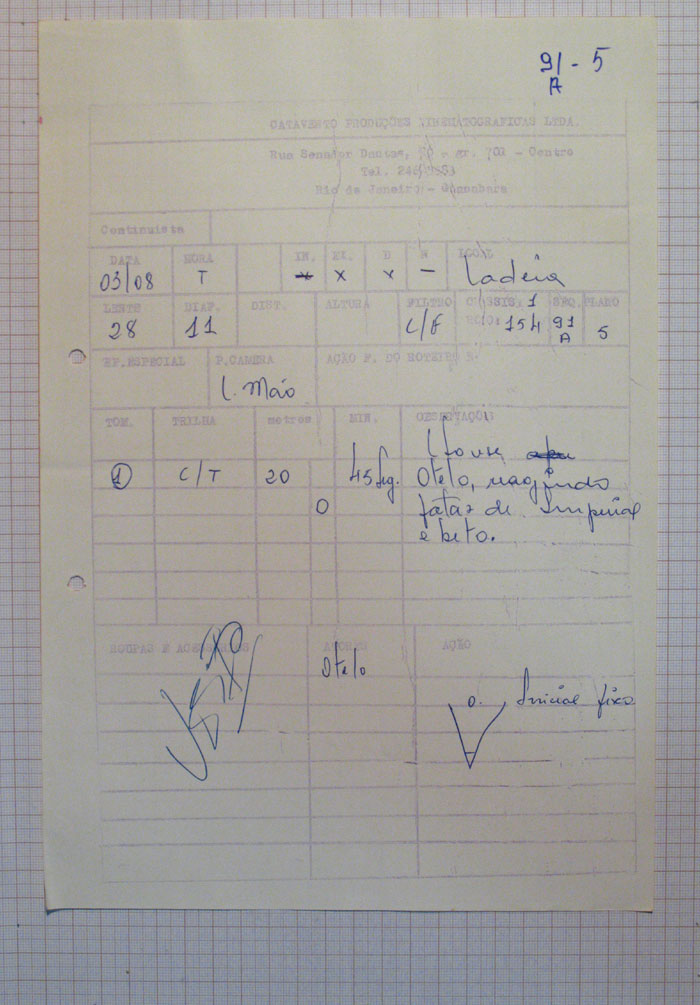 91 - 5
A
CATAVENTO PRODUÇÕES CINEMATOGRAFICAS LTDA.
Rua Senador Dantas, - gr. 701 - Centro
Tel.
Rio de Janeiro - Guanabara
Continuista
DATA HORA IN. EX. D N LOCAL
03/08 T x x x — Ladeira
LENTE DIAF. DIST. ALTURA FILTRO CHASSIS: 1 SEQ. PLANO
28 11 C/F 154 91 5
A
EF.ESPECIAL P.CAMERA AÇÃO F. DO ROTEIRO
C. Mão
TOM. TRILHA metros MIN.
Close
1 C/T 20 45 seg. Otelo, reagindo
0 falas de Imperial
e beto.
ROUPAS E ACESSORIOS ATORES AÇÃO
Otelo
O. Inicial fixo